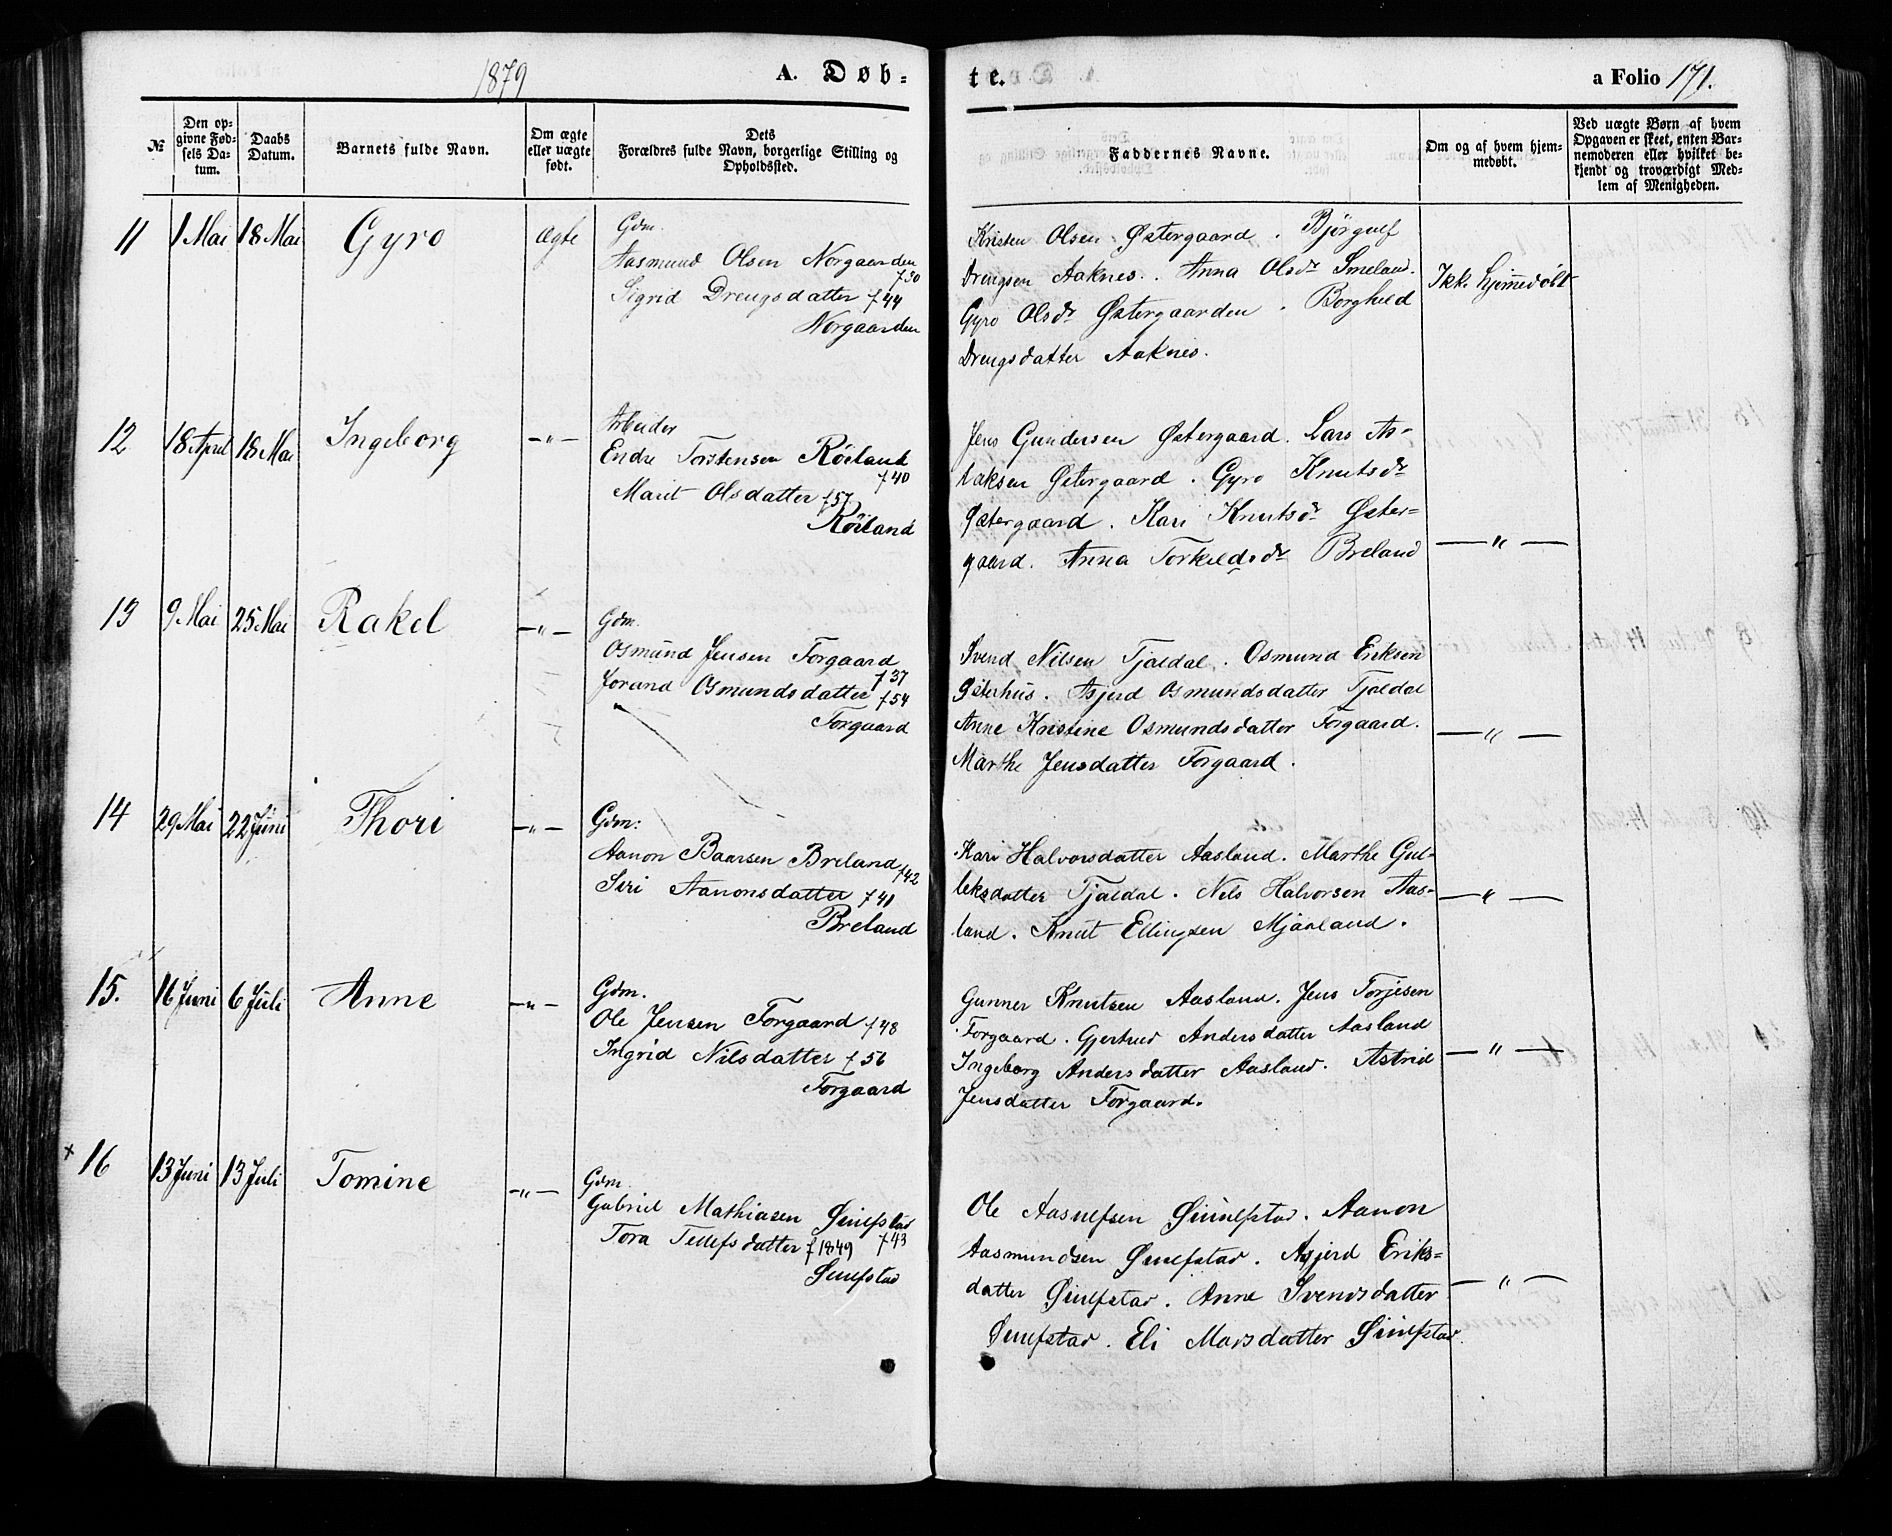 1879
A. Døb-
te.
a Folio 171.
№
Den op-
givne Fød-
sels Da-
tum.
Daabs
Datum.
Barnets fulde Navn.
Om ægte
eller uægte
født.
Dets
Forældres fulde Navn, borgerlige Stilling og
Opholdssted.
Faddernes Navne.
Om og af hvem hjem-
medøbt.
Ved uægte Børn af hvem
Opgaven er skeet, enten Bar-
nemoderen eller hvilket be-
kjendt og troværdigt Med-
lem af Menigheden.
11 1 Mai 18 Mai Gyro ægte
Gdm.
Aasmund Olsen Norgaarden
f 30
Sigrid Drengsdatter f 44
Norgaarden
Kristen Olsen Østergaard. Bjørgulf
Drengsen Aaknes. Anna Olsdr Smeland.
Gyro Olsdr Østergaarden. Borghild
Drengsdatter Aaknes.
Ikk. hjemmedøbt
12 18 April 18 Mai Ingeborg -"-
Arbeider
Endre Torstensen Röiland
f 40
Marit Olsdatter f 57
Röiland
Jens Gundersen Østergaard. Lars As-
laksen Østergaard. Gyro Knutsdr
Østergaard. Kari Knutsdr Øster-
gaard. Anna Torkildsdr Breland
-"-
13 9 Mai 25 Mai Rakel -"-
Gdm.
Osmund Jensen Forgaard
f 37
Jorand Osmundsdatter f 54
Forgaard
Svend Nilsen Tjaldal. Osmund Eriksen
Østerhus. Asjerd Osmundsdatter Tjaldal
Anne Kristine Osmundsdatter Forgaard.
Marthe Jensdatter Forgaard.
-"-
14 29 Mai 22 Juni Thori -"-
Gdm:
Aanon Baarsen Breland f 42
Siri Aanonsdatter f 41
Breland
Kari Halvorsdatter Aasland. Marthe Gul-
leksdatter Tjaldal. Nils Halvorsen Aas-
land. Knut Ellingsen Mjaaland.
-"-
15. 16 Juni 6 Juli Anne -"-
Gdm.
Ole Jensen Forgaard f 48
Ingrid Nilsdatter f 56
Forgaard
Gunner Knutsen Aasland. Jens Torjesen
Forgaard. Gjertrud Andersdatter Aasland
Ingeborg Andersdatter Aasland. Astrid
Jensdatter Forgaard.
-"-
x 16 13 Juni 13 Juli Tomine -"-
Gdm.
Gabriel Mathiasen Øiulfstad
Tora Tellefsdatter f 1849 f 43
Øiulfstad
Ole Aasulfsen Øiulfstad. Aanon
Aasmundsen Øiulfstad. Asjerd Eriks-
datter Øiulfstad. Anne Svendsdatter
Øiulfstad. Eli Marsdatter Øiulfstad.
-"-